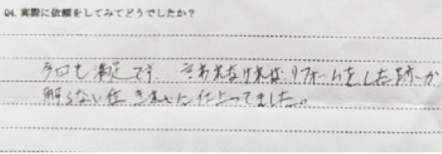 Q4. 実際に依頼をしてみてどうでしたか？
今回も満足です。言われなければリフォームをした跡か
解らない位きれいに仕上ってました。